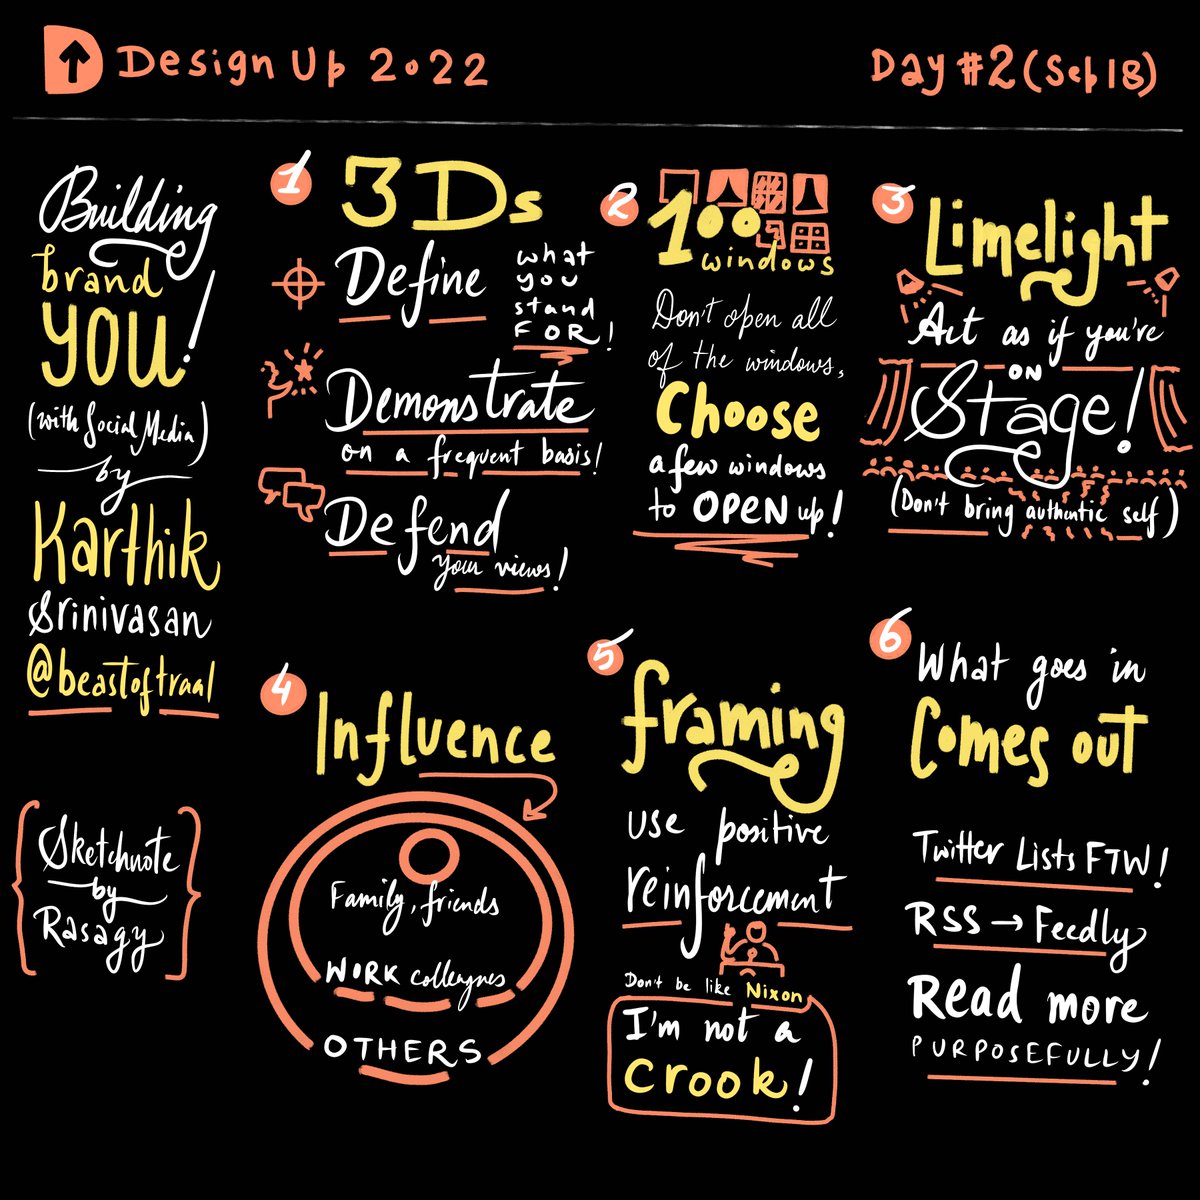 D Design Up 2022
Day #2 (Sep 18)
Building
brand
YOU!
(with Social Media)
by
Karthik
Srinivasan
@beastoftraal
{Sketchnote
by
Rasagy}
1 3Ds
Define
what
you
stand
FOR!
Demonstrate
on a frequent basis!
Defend
your views!
2 100
windows
Don't open all
of the windows,
Choose
a few windows
to OPEN up!
3 Limelight
Act as if you're
ON
Stage!
(Don't bring authentic self)
4 Influence
Family, friends
WORK colleagues
OTHERS
5 framing
use positive
reinforcement
Don't be like Nixon
I'm not a
Crook!
6 What goes in
Comes out
Twitter Lists FTW!
RSS → Feedly
Read more
PURPOSEFULLY!